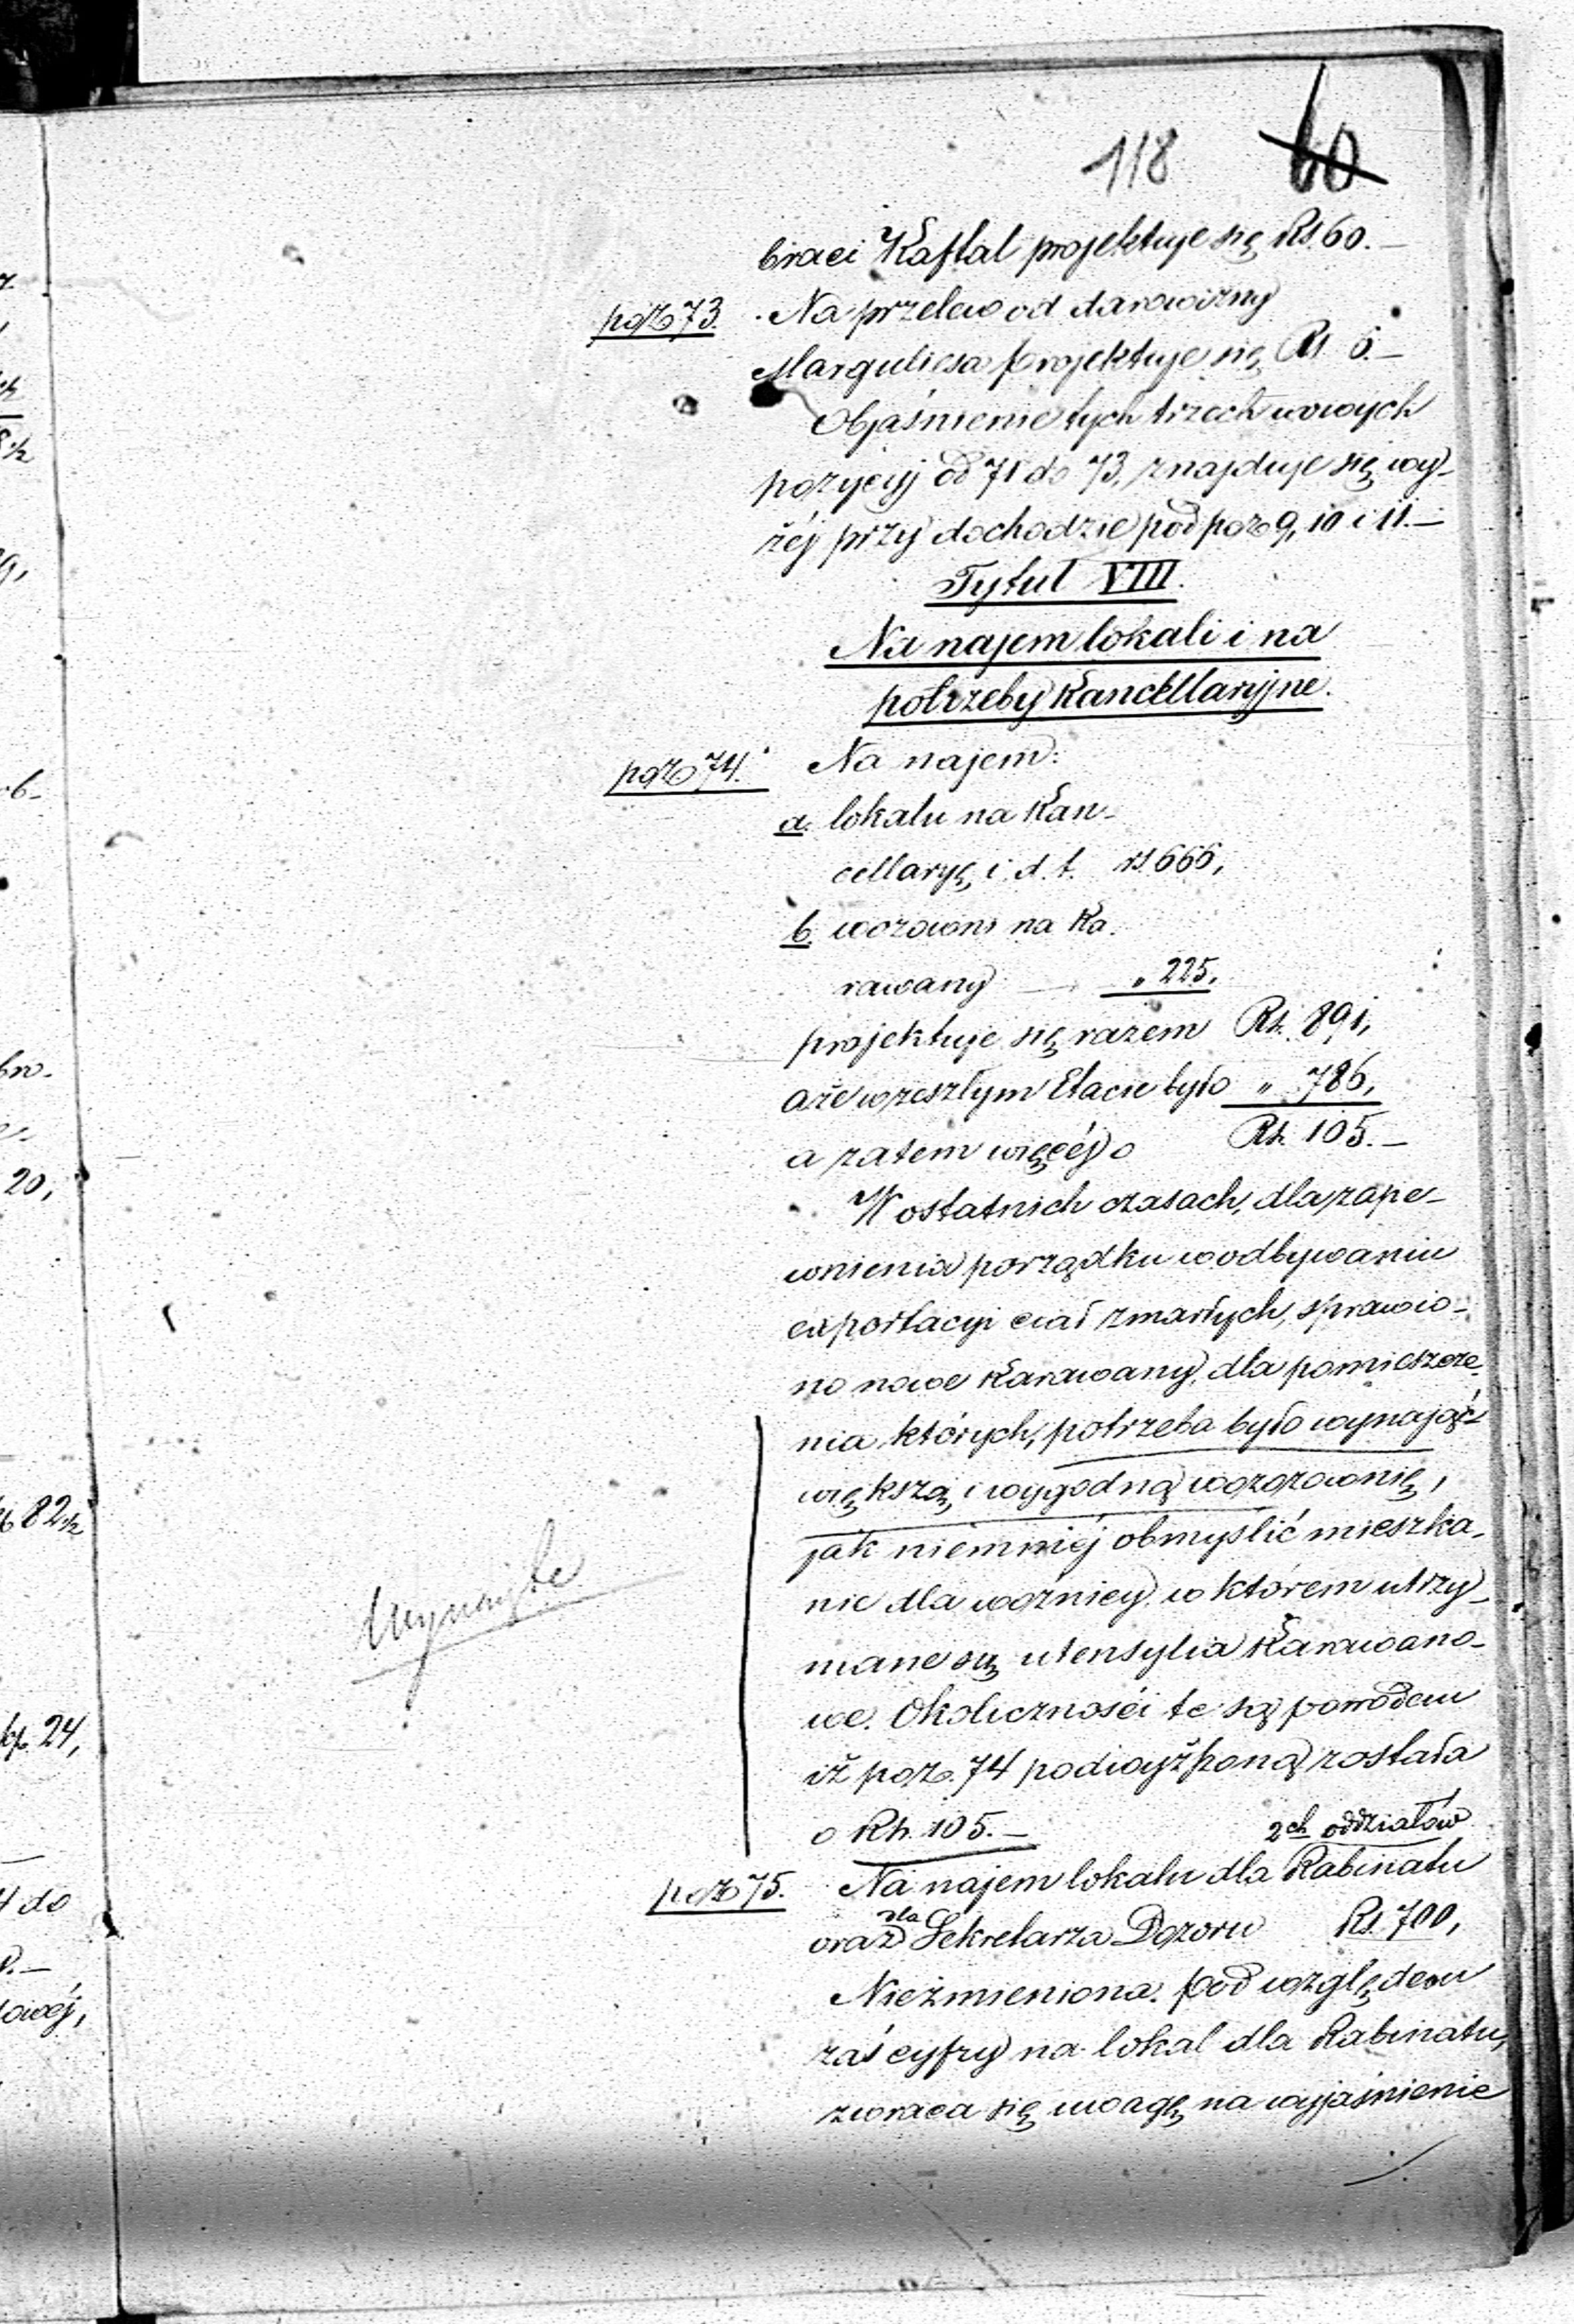 118 60
braci Kaftal projektuje się Rs. 60.—
poz. 73. Na przelew od darowizny
Marguliesa projektuje się Rs 6.—
Objaśnienie tych trzech nowych
pozycyj od 71 do 73, znajduje się wy-
żéj przy dochodzie pod poz. 9, 10 i 11.—
Tytuł VIII.
Na najem lokali i na
potrzeby Kancellaryjne.
poz. 74. Na najem:
a. lokalu na Kan-
cellaryę i. d. t. rs. 666,
b. wozowni na Ka-
rawany — „ 225,
projektuje się razem Rs. 891,
a że w zeszłym Etacie było „ 786,
a zatem więcéj o Rs. 105.—
W ostatnich czasach, dla zape-
wnienia porządku w odbywaniu
exportacyi ciał zmarłych, sprawio-
no nowe Karawany, dla pomieszcze-
nia których, potrzeba było wynająć
większą i wygodną wozownię,
jak niemniéj obmyślić mieszka-
nie dla woźnicy, w którem utrzy-
mane są utensylia Karawano-
we. Okoliczności te są powodem
iż poz. 74 podwyższoną została
o Rs. 105.—
2ch oddziałów
poz. 75. Na najem lokalu dla Rabinatu
dla
oraz Sekretarza Dozoru Rs. 700,
Niezmieniona. Pod względem
zaś cyfry na lokal dla Rabinatu,
zwraca się uwagę na wyjaśnienie
20,
82½
24,
do